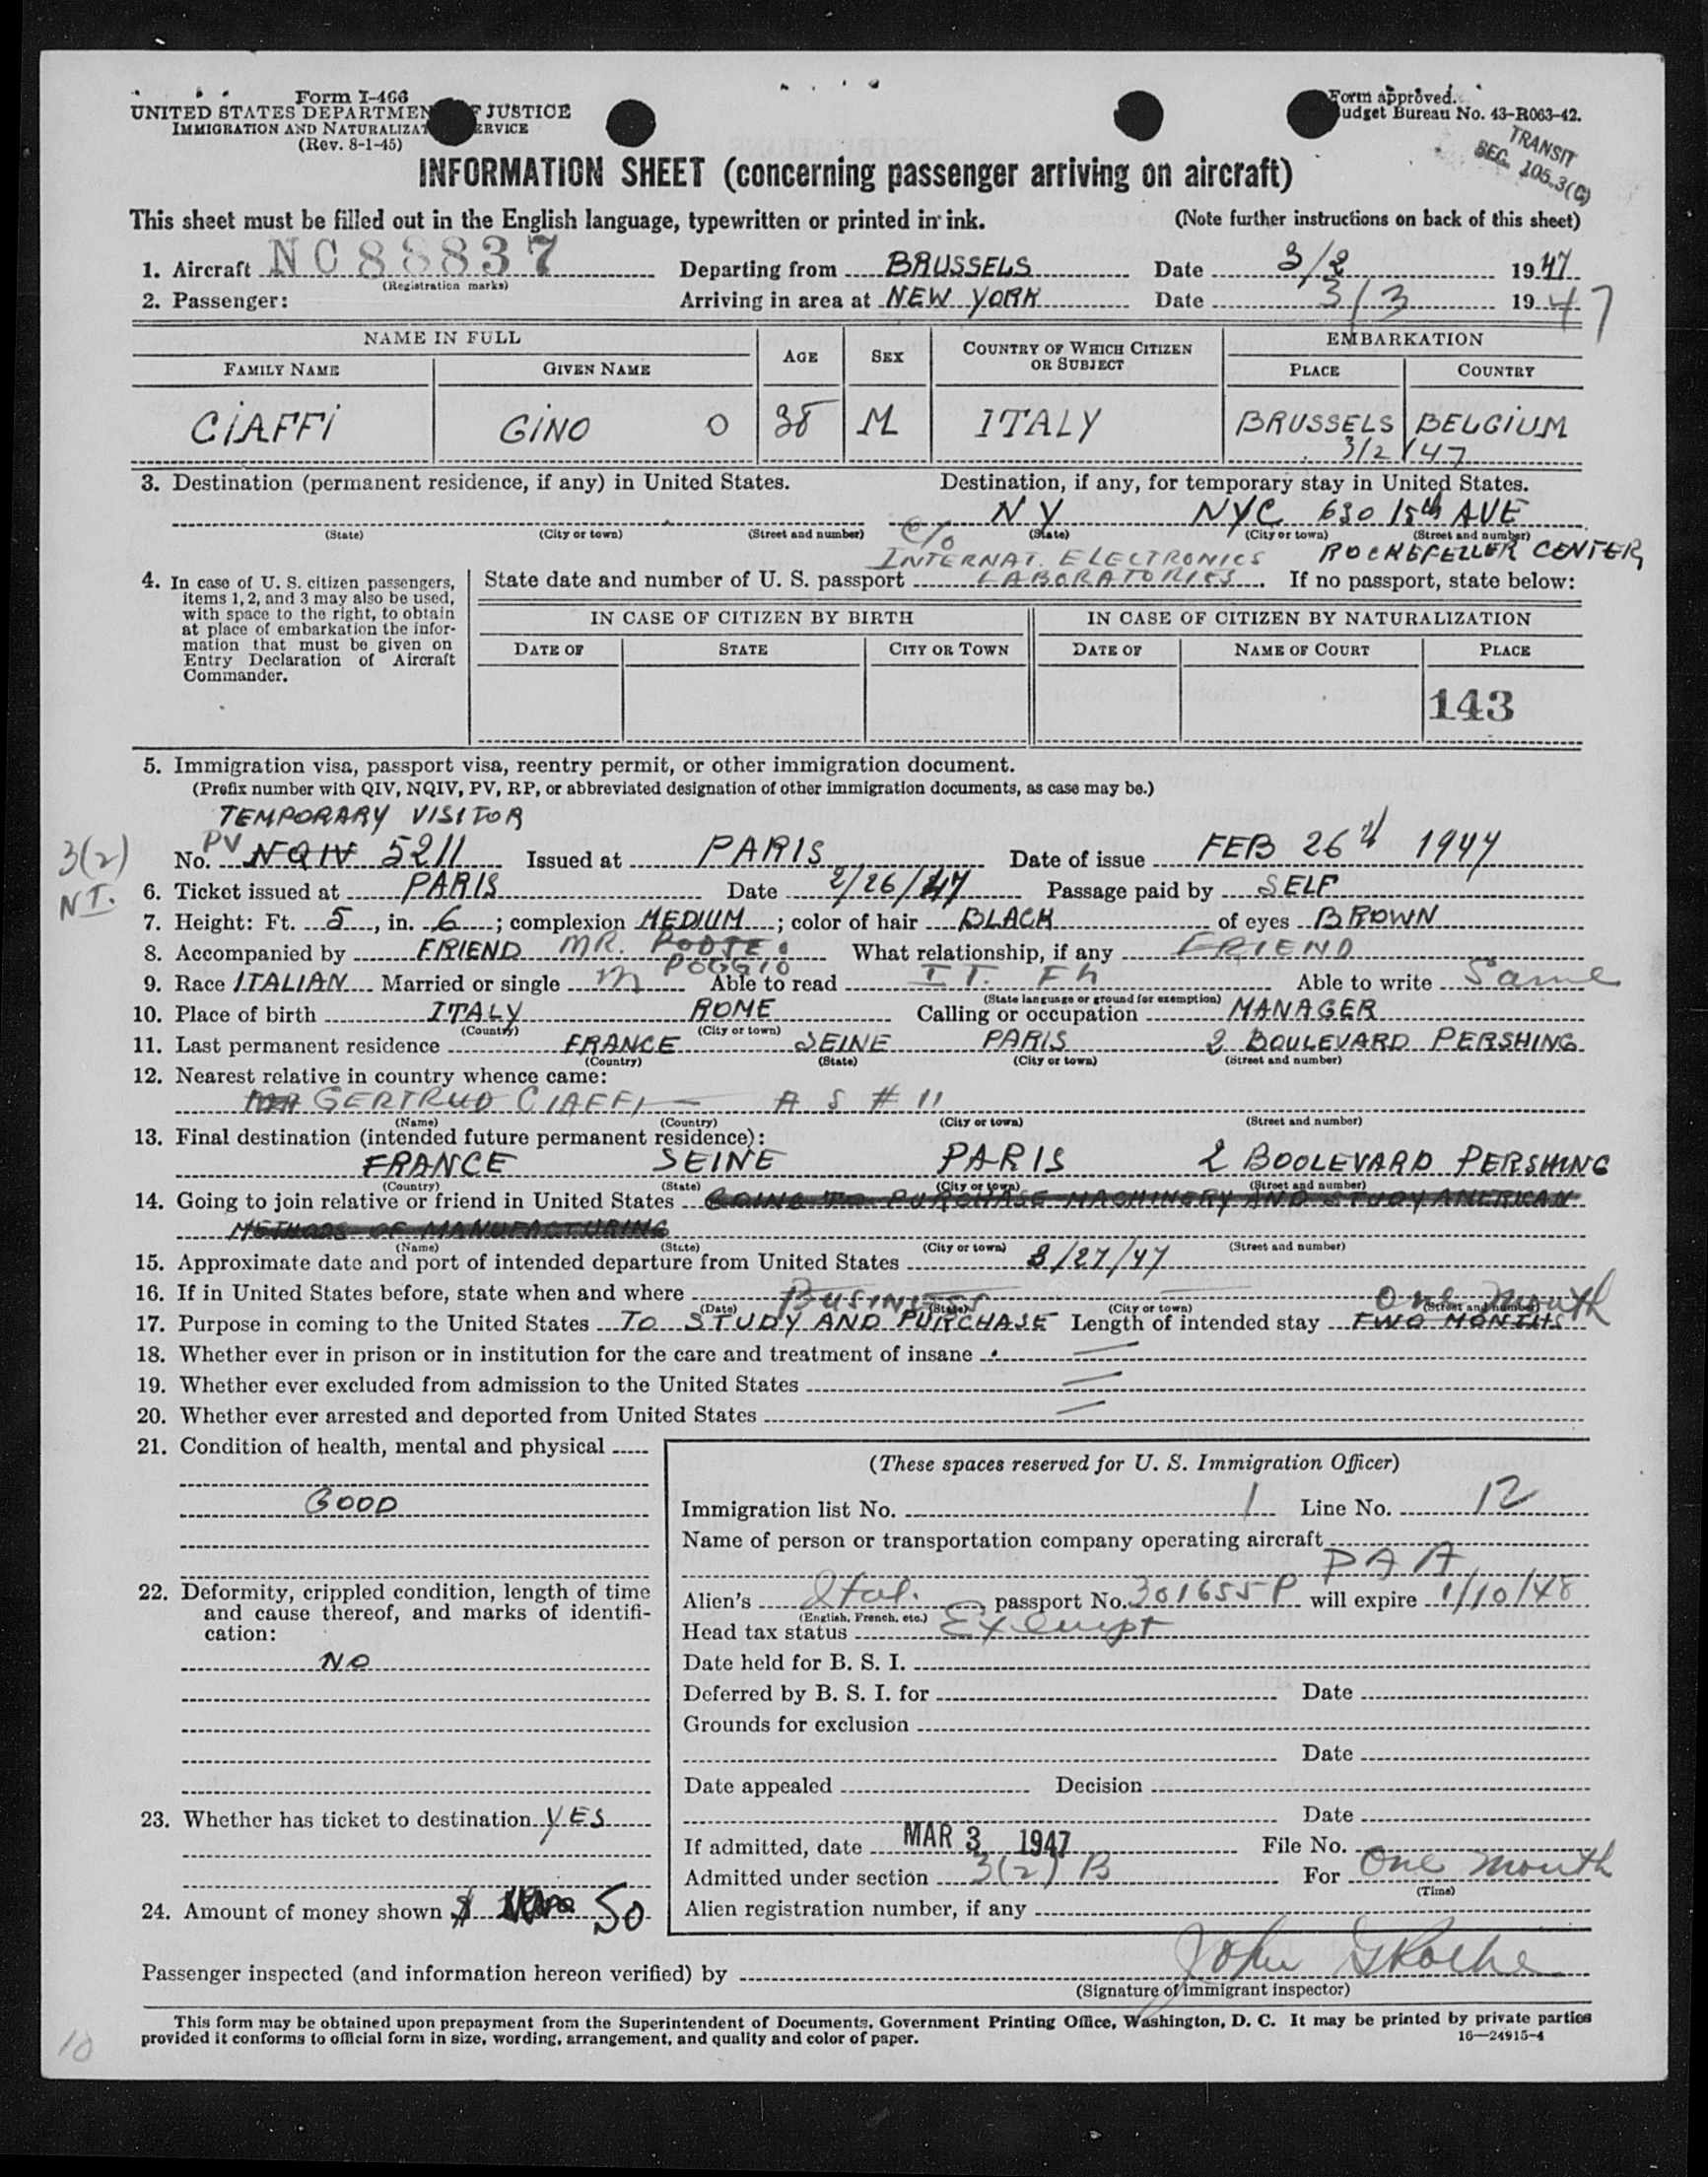 Form I-466
UNITED STATES DEPARTMENT OF JUSTICE
IMMIGRATION AND NATURALIZATION SERVICE
(Rev. 8-1-45)
Form approved.
Budget Bureau No. 43-R063-42.
TRANSIT
SEC. 105.3(C)
INFORMATION SHEET (concerning passenger arriving on aircraft)
This sheet must be filled out in the English language, typewritten or printed in ink. (Note further instructions on back of this sheet)
1. Aircraft NC88837 Departing from BRUSSELS Date 3/2 1947
(Registration marks)
2. Passenger: Arriving in area at NEW YORK Date 3/3 1947
NAME IN FULL AGE SEX COUNTRY OF WHICH CITIZEN OR SUBJECT EMBARKATION
FAMILY NAME GIVEN NAME PLACE COUNTRY
CIAFFI GINO O 38 M ITALY BRUSSELS BELGIUM
3/2/47
3. Destination (permanent residence, if any) in United States. Destination, if any, for temporary stay in United States.
NY NYC 630 15th AVE
(State) (City or town) (Street and number) C/o (State) (City or town) (Street and number)
INTERNAT. ELECTRONICS ROCKEFELLER CENTER,
4. In case of U. S. citizen passengers, items 1, 2, and 3 may also be used, with space to the right, to obtain at place of embarkation the information that must be given on Entry Declaration of Aircraft Commander.
State date and number of U. S. passport LABORATORIES. If no passport, state below:
IN CASE OF CITIZEN BY BIRTH IN CASE OF CITIZEN BY NATURALIZATION
DATE OF STATE CITY OR TOWN DATE OF NAME OF COURT PLACE
143
5. Immigration visa, passport visa, reentry permit, or other immigration document.
(Prefix number with QIV, NQIV, PV, RP, or abbreviated designation of other immigration documents, as case may be.)
TEMPORARY VISITOR
3(2)
NI.
No. PV NQIV 5211 Issued at PARIS Date of issue FEB 26th 1947
6. Ticket issued at PARIS Date 2/26/47 Passage paid by SELF
7. Height: Ft. 5, in. 6; complexion MEDIUM; color of hair BLACK of eyes BROWN
8. Accompanied by FRIEND MR. What relationship, if any FRIEND
POGGIO
9. Race ITALIAN Married or single m Able to read IT. Fh Able to write Same
(State language or ground for exemption)
10. Place of birth ITALY ROME Calling or occupation MANAGER
(Country) (City or town)
11. Last permanent residence FRANCE SEINE PARIS 2 BOULEVARD PERSHING
(Country) (State) (City or town) (Street and number)
12. Nearest relative in country whence came:
GERTRUD CIAFFI — A S # 11
(Name) (Country) (City or town) (Street and number)
13. Final destination (intended future permanent residence):
FRANCE SEINE PARIS 2 BOOLEVARD PERSHING
(Country) (State) (City or town) (Street and number)
14. Going to join relative or friend in United States GOING TO PURCHASE MACHINERY AND STUDY AMERICAN
METHODS OF MANUFACTURING
(Name) (State) (City or town) (Street and number)
15. Approximate date and port of intended departure from United States 3/27/47
16. If in United States before, state when and where
(Date) (State) (City or town) (Street and number)
BUSINESS One month
17. Purpose in coming to the United States TO STUDY AND PURCHASE Length of intended stay TWO MONTHS
18. Whether ever in prison or in institution for the care and treatment of insane —
19. Whether ever excluded from admission to the United States —
20. Whether ever arrested and deported from United States —
21. Condition of health, mental and physical
GOOD
22. Deformity, crippled condition, length of time and cause thereof, and marks of identification:
NO
23. Whether has ticket to destination YES
24. Amount of money shown $ 50
(These spaces reserved for U. S. Immigration Officer)
Immigration list No. 1 Line No. 12
Name of person or transportation company operating aircraft
PAA
Alien's Ital. passport No. 301655P will expire 1/10/48
(English, French, etc.)
Head tax status Exempt
Date held for B. S. I.
Deferred by B. S. I. for Date
Grounds for exclusion
Date
Date appealed Decision
Date
If admitted, date MAR 3 1947 File No.
Admitted under section 3(2) B For One month
(Time)
Alien registration number, if any
Passenger inspected (and information hereon verified) by John
(Signature of immigrant inspector)
This form may be obtained upon prepayment from the Superintendent of Documents, Government Printing Office, Washington, D. C. It may be printed by private parties
provided it conforms to official form in size, wording, arrangement, and quality and color of paper. 16—24915-4
10